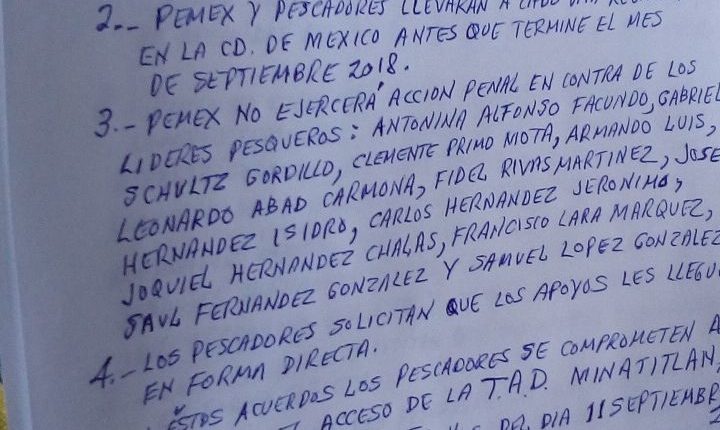 2.-- PEMEX Y PESCADORES LLEVARÁN A
EN LA CD. DE MEXICO ANTES QUE TERMINE EL MES
DE SEPTIEMBRE 2018.
3.- PEMEX NO EJERCERÁ ACCION PENAL EN CONTRA DE LOS
LIDERES PESQUEROS: ANTONINA ALFONSO FACUNDO, GABRIEL
SCHULTZ GORDILLO, CLEMENTE PRIMO MOTA, ARMANDO LUIS,
LEONARDO ABAD CARMONA, FIDEL RIVAS MARTINEZ, JOSE
HERNANDEZ ISIDRO, CARLOS HERNANDEZ JERONIMO,
JOQUIEL HERNANDEZ CHALAS, FRANCISCO LARA MARQUEZ,
SAUL FERNANDEZ GONZALEZ Y SAMUEL LOPEZ GONZALEZ
4.- LOS PESCADORES SOLICITAN QUE LOS APOYOS LES LLEGU
EN FORMA DIRECTA.
ESTOS ACUERDOS LOS PESCADORES SE COMPROMETEN A
ACCESO DE LA T.A.D. MINATITLAN,
DEL DIA 11 SEPTIEMBR